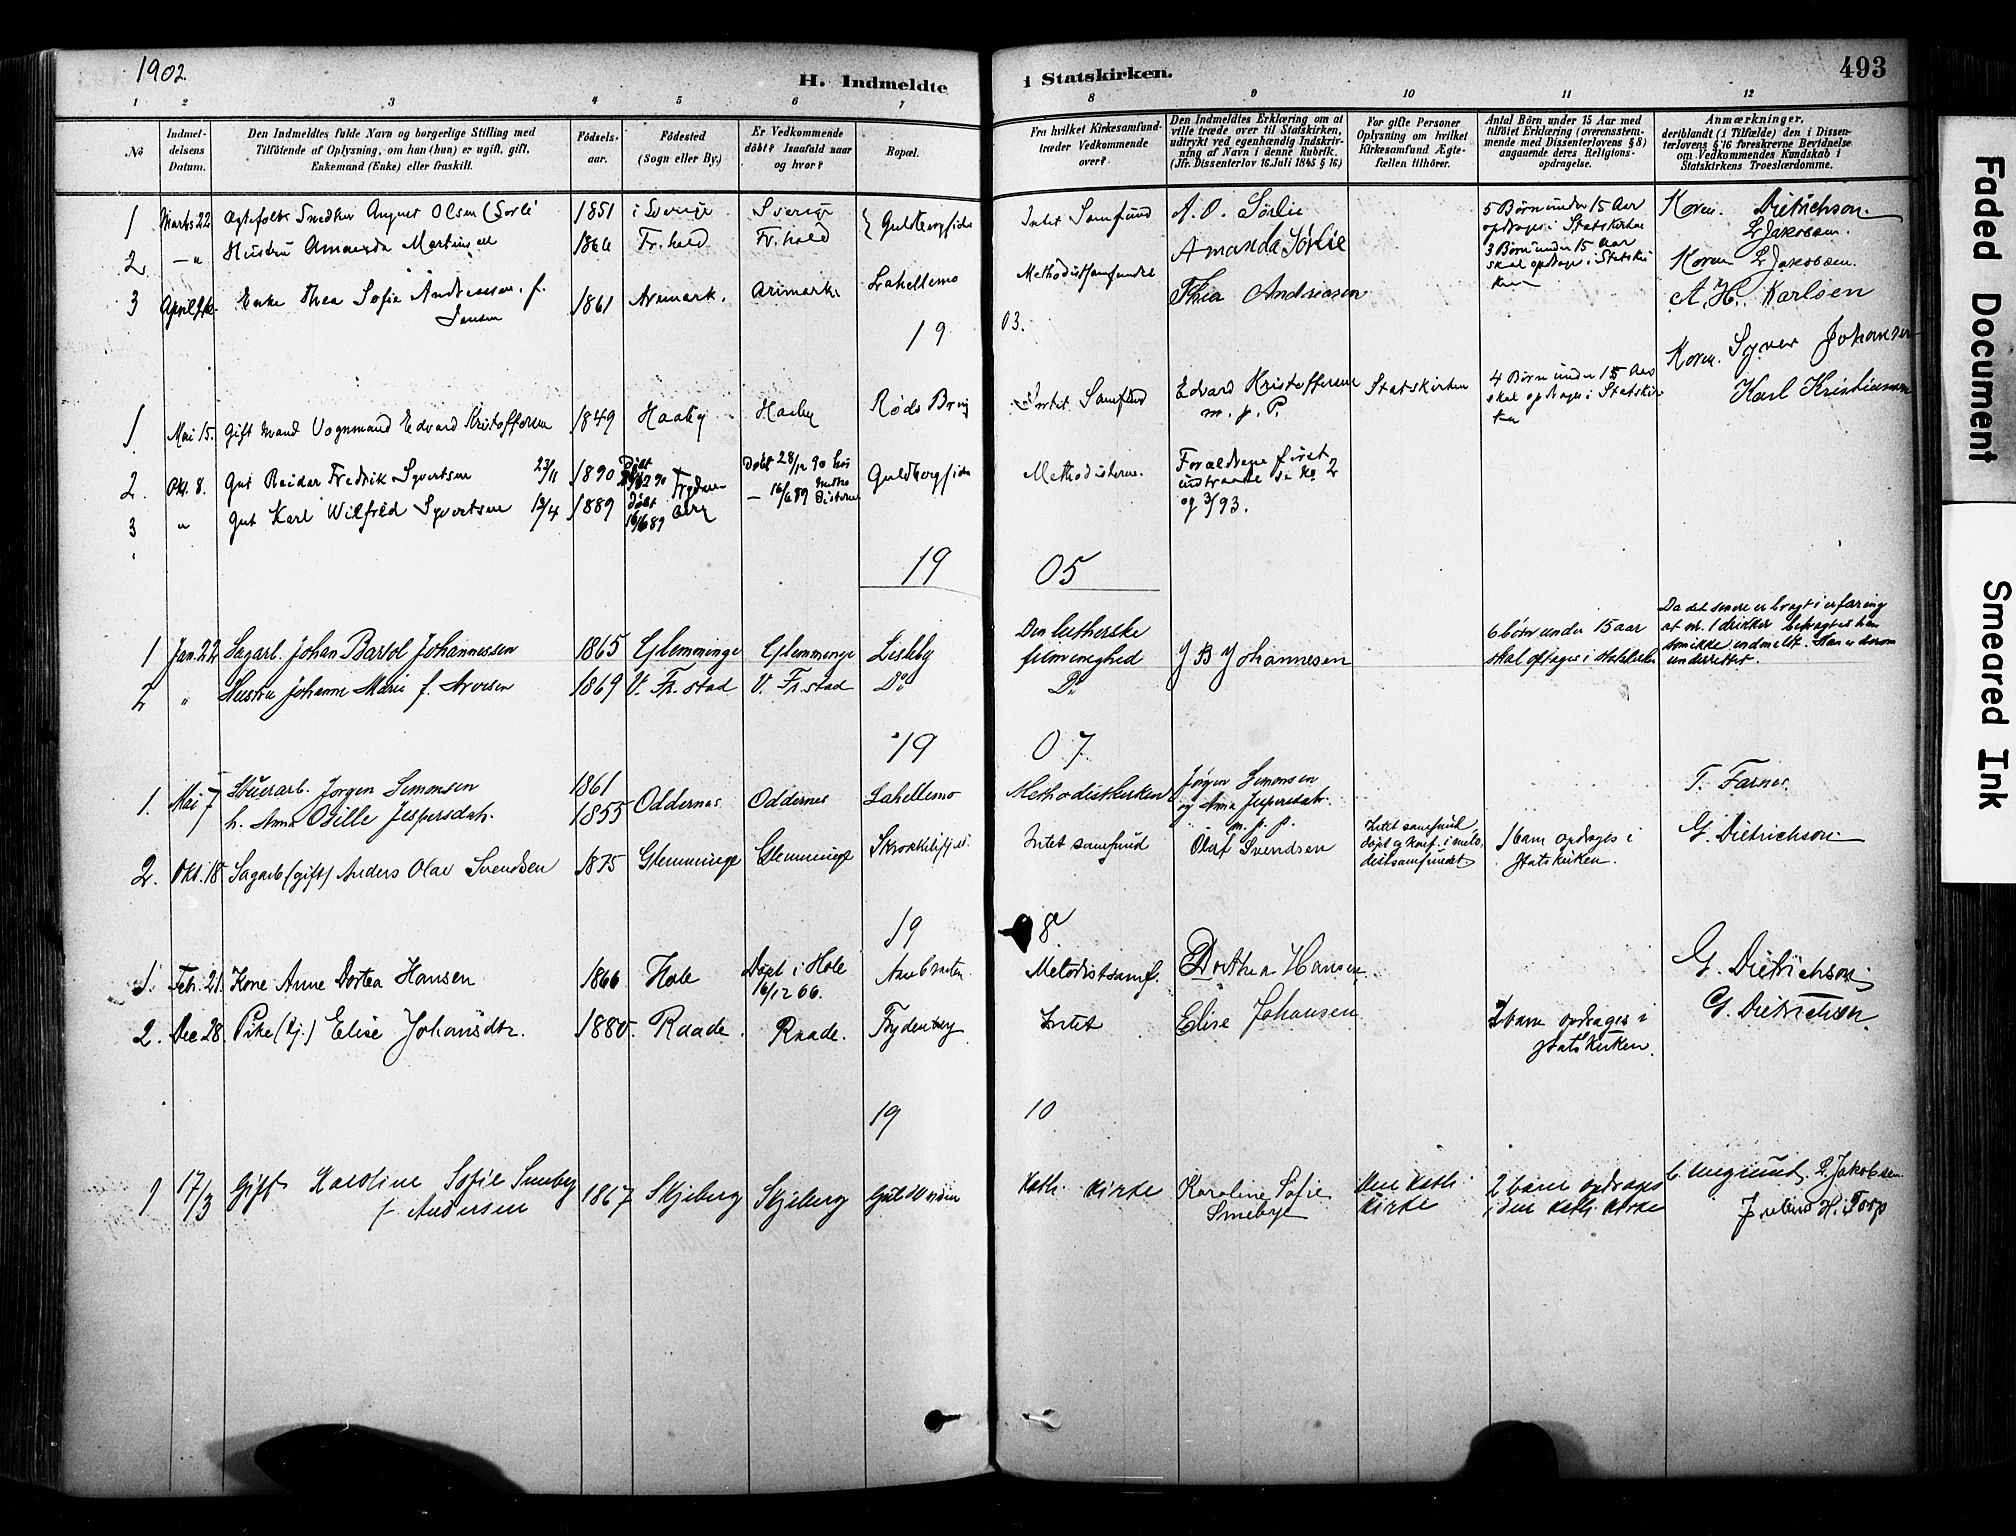 1902.
H. Indmeldte i Statskirken.
493
1 2 3 4 5 6 7 8 9 10 11 12
No
Indmeldelsens Datum.
Den Indmeldtes fulde Navn og borgerlige Stilling med Tilføiende af Oplysning, om han (hun) er ugift, gift, Enkemand (Enke) eller fraskilt.
Fødselsaar.
Fødested (Sogn eller By.)
Er Vedkommende døbt? Isaafald naar og hvor?
Bopæl.
Fra hvilket Kirkesamfund træder Vedkommende over?
Den Indmeldtes Erklæring om at ville træde over til Statskirken, udtrykt ved egenhændig Indskrivning af Navn i denne Rubrik. (Jfr. Dissenterlov 16. Juli 1845 § 16)
For gifte Personer Oplysning om hvilket Kirkesamfund Ægtefællen tilhører.
Antal Børn under 15 Aar med tilføiet Erklæring (overensstemmende med Dissenterlovens § 8) angaaende deres Religionsopdragelse.
Anmærkninger, deriblandt (i Tilfælde) den i Dissenterlovens § 16 foreskrevne Bevidnelse om Vedkommendes Kundskab i Statskirkens Troeslærdomme.
1 Marts 22 Ægtefolk Snedker August Olsen (Sørli 1851 i Sverige Sverige Guldbergsiden Intet Samfund A. O. Sørlie 5 Børn under 15 Aar opdrages i Statskirken Koren. Dietrichson. L Jakobsen.
2 — " Hustru Amanda Martinsen 1866 Fr.hald Fr.hald Amanda Sørlie
3 April Enke Thea Sofie Andreasen f. Jensen 1861 Aremark. Arimark. Lahellemo Methodistsamfundet Thea Andreasen 3 Børn under 15 Aar skal opdrages i Statskirken Koren L Jakobsen. A. H. Karlsen
19 03.
1 Mai 15. Gift Mand Vognmand Edvard Kristoffersen 1849 Haaby Haaby Røds Brug Intet Samfund Edvard Kristoffersen m. p. P. Statskirken 4 Børn under 15 Aar skal opdrages i Statskirken Koren. Syver Johansen Karl Kristiansen
2. Okt. 8. Gut Reidar Fredrik Syvertsen 23/11 1890 Døbt 28/12 90 hos Metodisterne Guldbergsiden Methodisterne. Forældrene først indtraadte se No 2 og 3/93.
3 " Gut Karl Wilfred Syvertsen 12/4 1889 døbt 16/6 89 — 16/6 89
19 05
1 Jan. 22 Sagarb. Johan Bartol Johannessen 1865 Glemminge Glemminge Lisleby Den lutherske frimenighed J B Johannesen 6 børn under 15 aar skal optages i statskirken Da det senere er bragt i erfaring at nr. 1 drikker betragtes han som ikke indmeldt. Han er derom underrettet.
2 " Hustru Johanne Marie f. Arvesen 1869 V. Fr.stad V. Fr.stad Do Do
19 07
1. Mai 7 Stuerarb. Jørgen Simonsen 1861 Oddernes Oddernes Lahellemo Methodistkirken Jørgen Simonsen T. Farnes.
h. Anna Odille Jespersdatr. 1855 og Anna Jespersdatr. m. p. p.
2. Okt. 18 Sagarb (gift) Anders Olav Svendsen 1875 Glemminge Glemminge Intet samfund Olaf Svendsen Intet samfund døpt og konf. i metodistsamfundet 1 barn opdrages i statskirken. G. Dietrichson.
19 8
1. Feb. 21. Kone Anne Dortea Hansen 1866 Hole Døpt i Hole 16/12 66. Metodistsamf. Dorthea Hansen. G. Dietrichson.
2. Dec 28. Pike (Tj.) Elise Johansdtr. 1880. Raade. Raade. Frydenberg Intet Elise Johansen 2 barn opdrages i statskirken. G. Dietrichson.
19 10
1 17/3 Gift Karoline Sofie Smeby f. Andersen 1867 Skjeberg Skjeberg Kath. kirke Karoline Sofie Smebye Den kath. kirke 2 barn opdrages i den kath. kirke L. Jakobsen Julius H. Torp
Faded Document
Smeared Ink